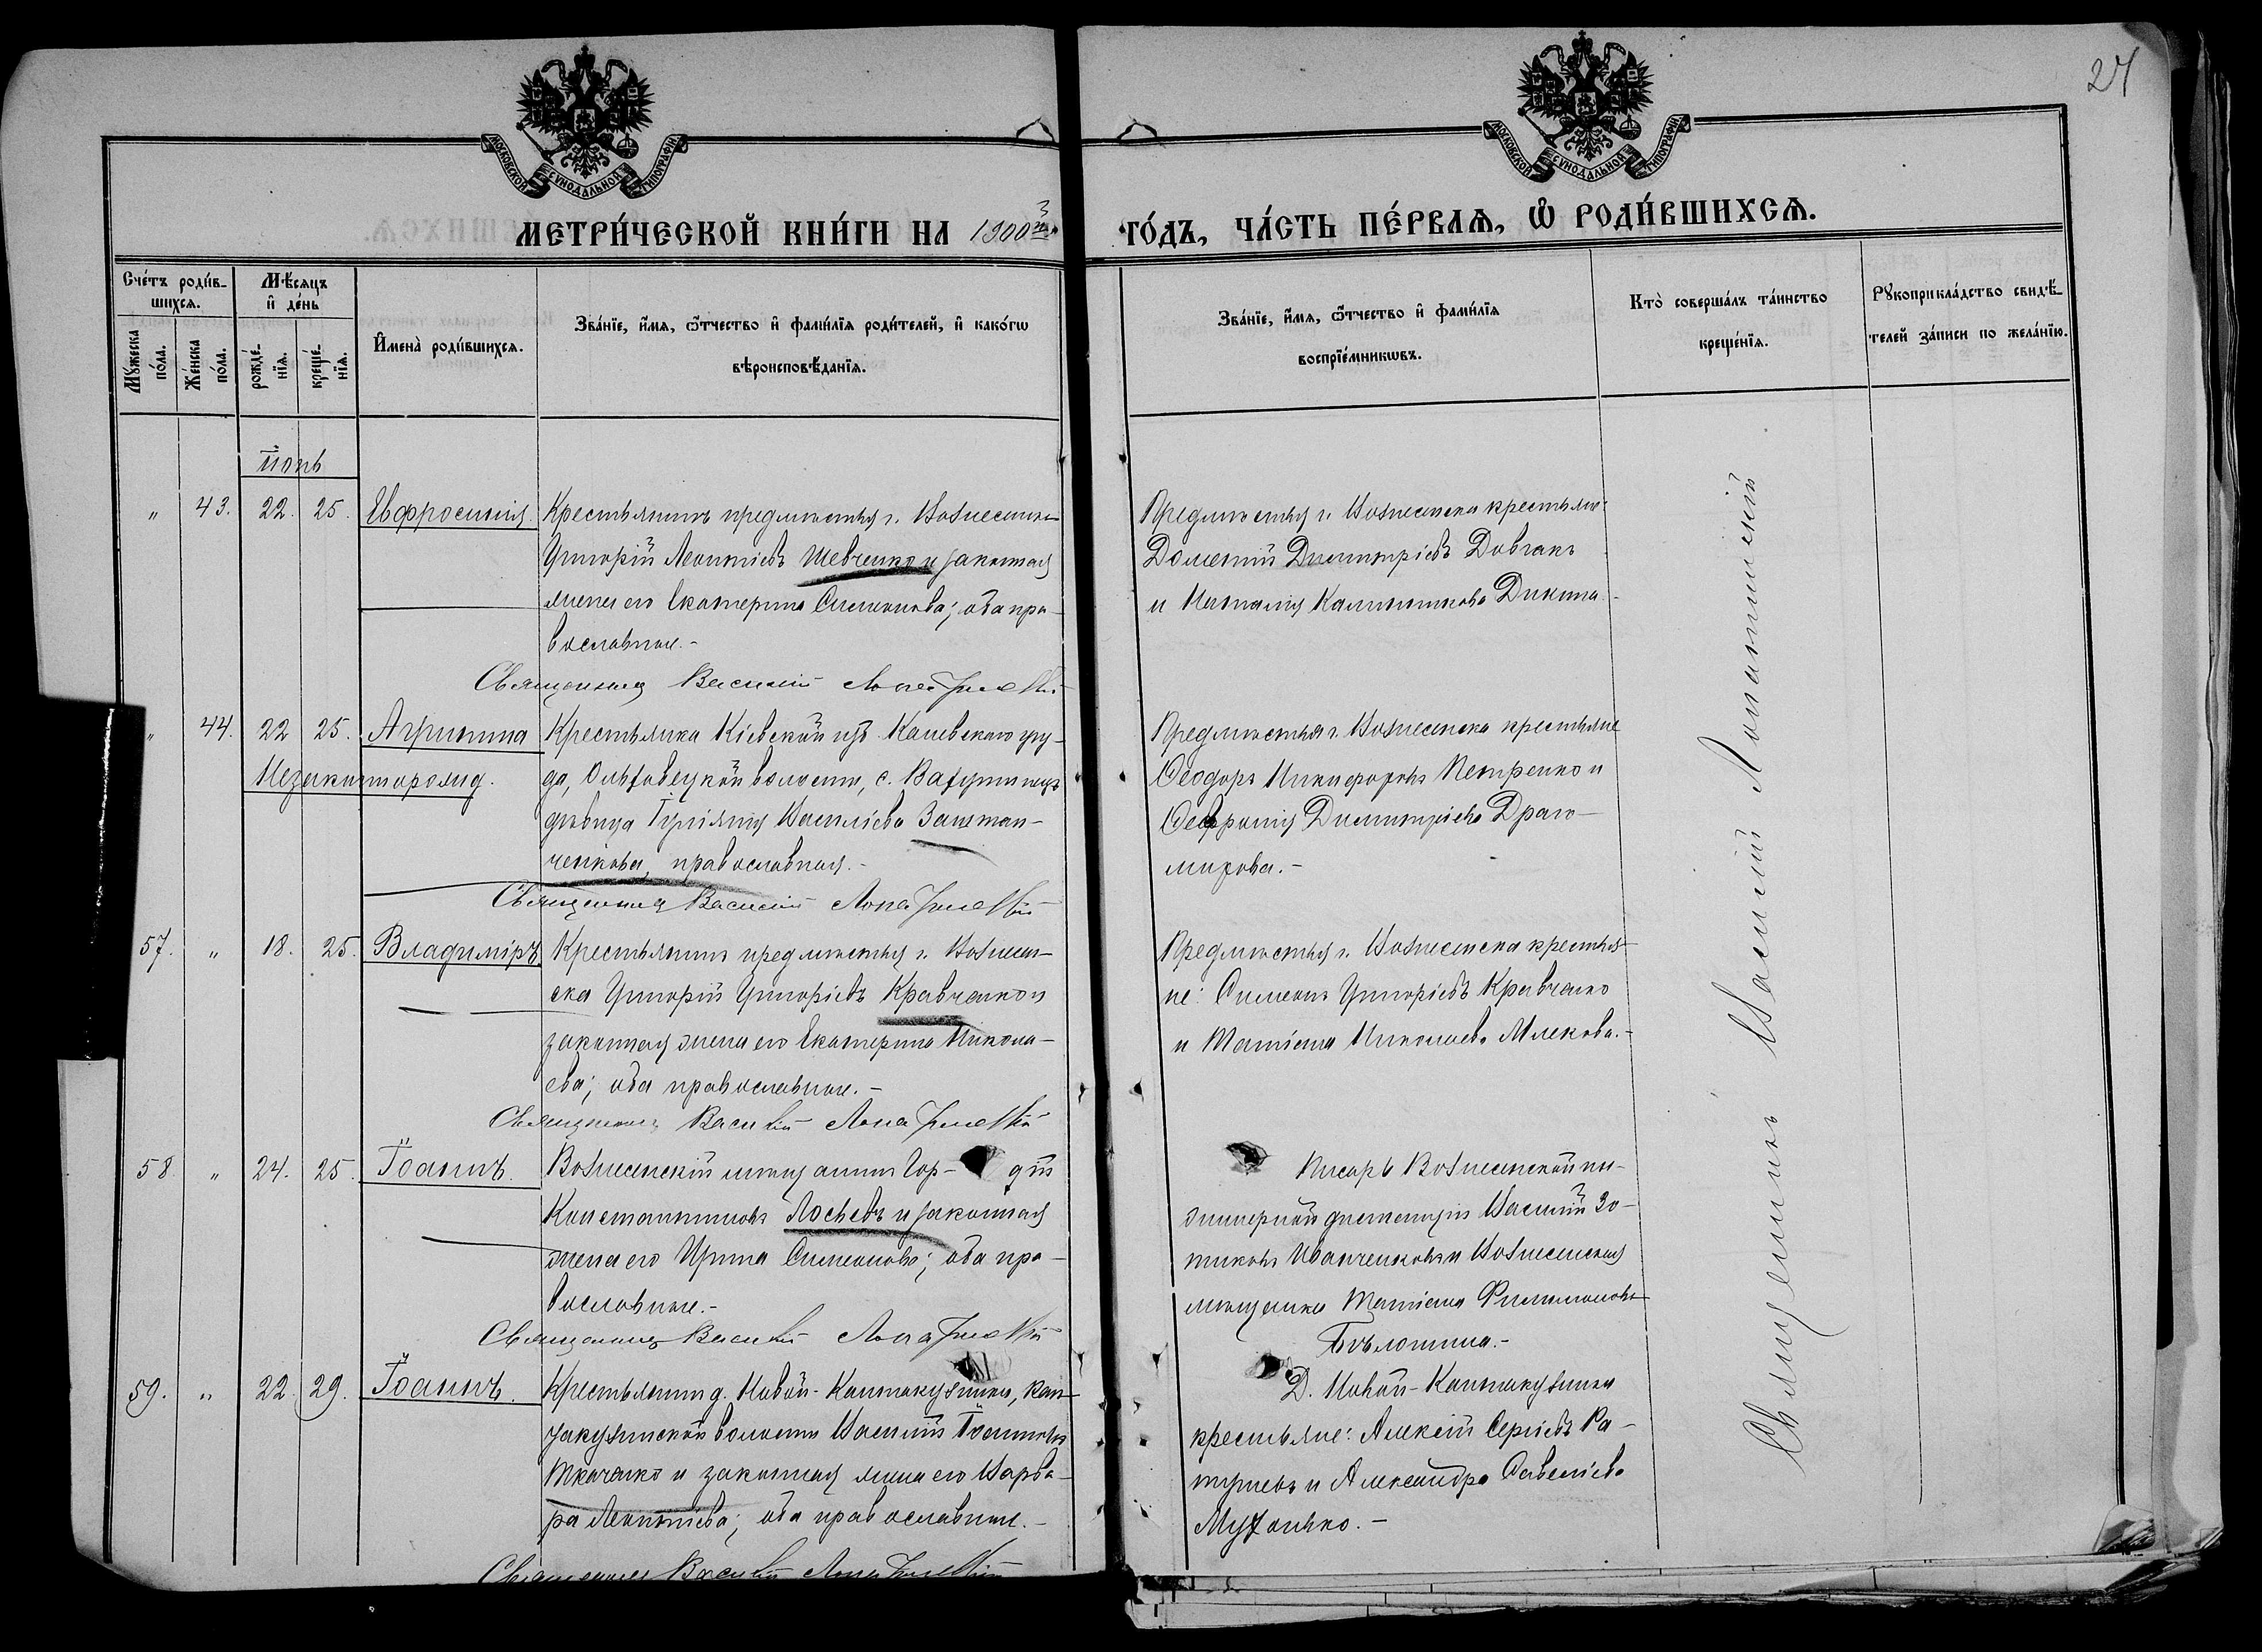 27
МОСКОВСКОЙ СУНОДАЛЬНОЙ ТИПОГРАФІИ
МОСКОВСКОЙ СУНОДАЛЬНОЙ ТИПОГРАФІИ
МЕТРИ́ЧЕСКОЙ КНИ́ГИ НА 1900
ГО́ДЪ, ЧА́СТЬ ПЕ́РВАѦ, Ѡ҆ РОДИ́ВШИХСѦ.
Сче́тъ роди́в-
шихсѧ.
Му́жеска
по́ла.
Же́нска
по́ла.
Мѣ́сѧцъ
и҆ де́нь
рожде́-
нїѧ.
креще́-
нїѧ.
И҆мена̀ роди́вшихсѧ.
Зва́нїе, и҆́мѧ, ѻ҆́тчество и҆ фами́лїѧ роди́телей, и҆ како́гѡ
вѣроисповѣ́данїѧ.
Зва́нїе, и҆́мѧ, ѻ҆́тчество и҆ фами́лїѧ
воспрїе́мникѡвъ.
Кто̀ соверша́лъ та́инство
креще́нїѧ.
Рꙋкоприкла́дство свидѣ́-
телей за́писи по жела́нїю.
" 43. 22. 25. Евфросинія.
Крестьянинъ предмѣстья г. Вознесенска
Григорій Леонтіевъ Шевченко и законная
жена его Екатерина Симеонова; оба пра-
вославные.-
Священникъ Василій
Предмѣстья г. Вознесенска крестьяне:
Дометій Димитріевъ Довгань
и Наталія Дикина.-
" 44. 22 25. Агрипина
Незаконнорожд.
Крестьянка Кіевской губ. Каневскаго уѣз-
да, волости, с.
дѣвица Іуліанія Василіева Заштан-
ченкова, православная.-
Священникъ Василій
Предмѣстья г. Вознесенска крестьяне
Ѳеодоръ Никифоровъ Петренко и
Димитріева Драго-
мирова.-
57. " 18. 25. Владиміръ
Крестьянинъ предмѣстья г. Вознесен-
ска Григорій Григоріевъ Кравченко и
законная жена его Екатерина Никола-
ева; оба православные.-
Священникъ Василій
Предмѣстья г. Вознесенска крестья-
не: Симеонъ Григоріевъ Кравченко
и Татіана Николаева Млекова.-
58 " 24. 25. Іоаннъ.
Вознесенскій мѣщанинъ Гор- дій
Константиновъ Лосьевъ и законная
жена его Ирина Симеонова; оба пра-
вославные.-
Священникъ Василій
Писарь Вознесенской ин-
женерной дистанціи Василій Зо-
тиковъ Иванченковъ и Вознесенская
мѣщанка Татіана Филимонова
Бѣлотина.-
59. " 22. 29. Іоаннъ.
Крестьянинъ д. Новой-Кантакузинки, Кан-
такузинской волости Василій Іоанновъ
Ткаченко и законная жена его Варва-
ра Леонтіева; оба православные.-
Священникъ Василій
Д. Новой-Кантакузинки
крестьяне: Алексій Сергіевъ Ра-
и Александра Савеліева
.-
Священникъ Василій